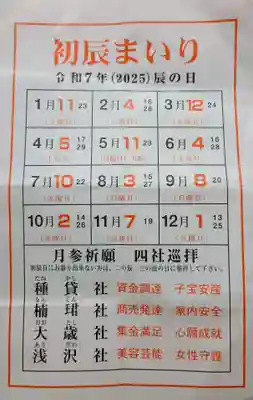 初辰まいり
令和7年(2025)辰の日
1月11 23 2月4 16 28 3月12 24
4月5 17 29 5月11 23 6月4 16 28
7月10 22 8月3 15 27 9月8 20
10月2 14 26 11月7 19 12月1 13 25
月参祈願 四社巡拝
種貸社 資金調達 子宝安産
楠珺社 商売発達 家内安全
大歳社 集金満足 心願成就
浅沢社 美容芸能 女性守護